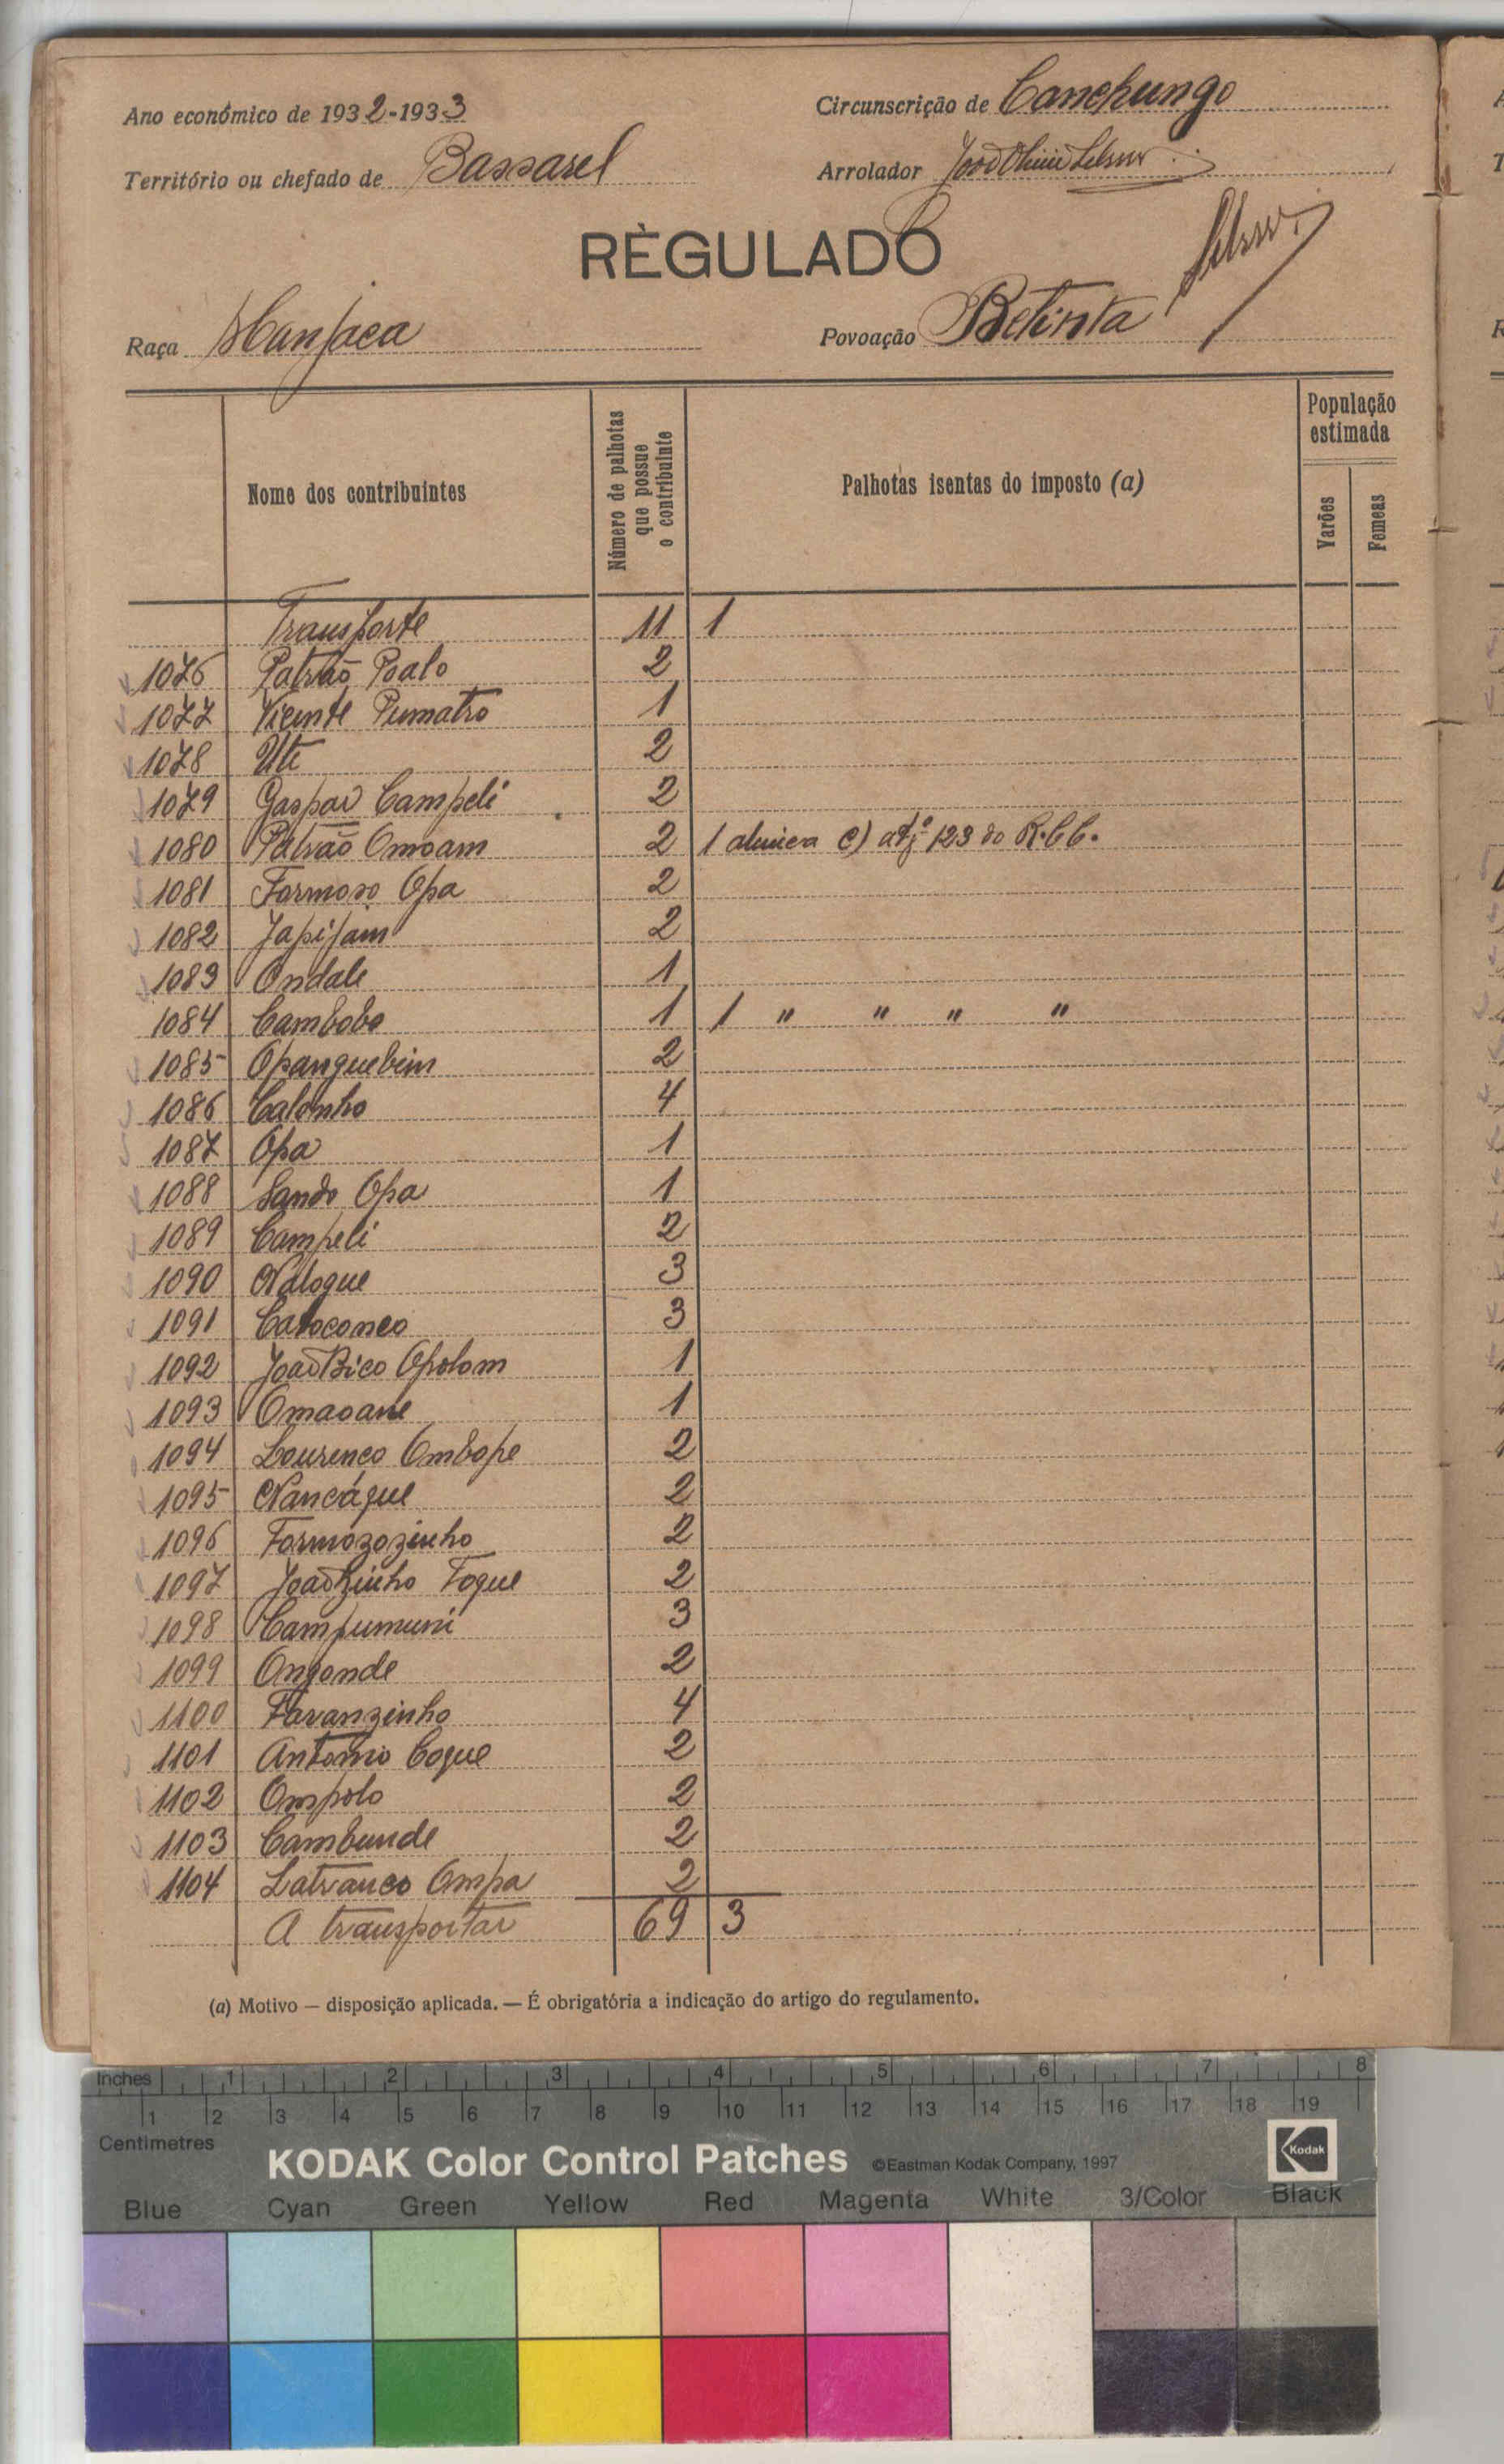 Ano económico de 1932-1933
Circunscrição de Canchungo
Território ou chefado de Bassarel
Arrolador
RÈGULADO
Raça Manjaca
Povoação Betinta
Nome dos contribuintes
Número de palhotas que possue o contribuinte
Palhotas isentas do imposto (a)
População estimada
Varões
Femeas
Transporte 11 1
1076 Patrão Poalo 2
1077 Vicente Pumatro 1
1078 Ute 2
1079 Gaspar Campeli 2
1080 Patrão Omoam 2 1 alinea c) artº 123 do R.C.C.
1081 Formoso Opa 2
1082 Japijam 2
1083 Ondale 1
1084 Cambobo 1 1 " " " "
1085 Opanguebim 2
1086 Calonho 4
1087 Opa 1
1088 Sando Opa 1
1089 Campeli 2
1090 Naloque 3
1091 3
1092 João Bico Opolom 1
1093 Omaoane 1
1094 Lourenço Ombope 2
1095 Nancáque 2
1096 Formózozinho 2
1097 Joãozinho Toque 2
1098 Campumuni 3
1099 Ongonde 2
1100 Favanzinho 4
1101 Antonio Coque 2
1102 Ompolo 2
1103 Cambunde 2
1104 Latranco Ompa 2
A transportar 69 3
(a) Motivo — disposição aplicada. — É obrigatória a indicação do artigo do regulamento.
Inches 1 2 3 4 5 6 7 8
1 2 3 4 5 6 7 8 9 10 11 12 13 14 15 16 17 18 19
Centimetres
KODAK Color Control Patches ©Eastman Kodak Company, 1997 Kodak
Blue Cyan Green Yellow Red Magenta White 3/Color Black